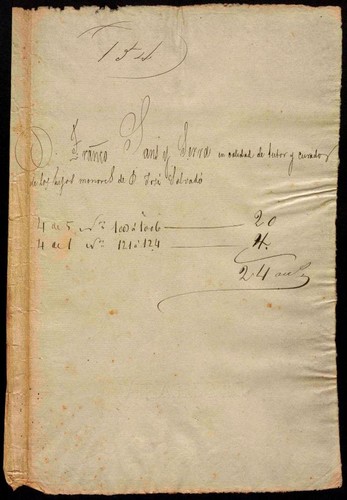 154
D. Franco Sans y Serra en calidad de tutor y curador
de los hijos menores de D. José Salvadó
4 de 5 Nos 1003 à 1006 20
4 de 1 Nos 121 à 124 4
24